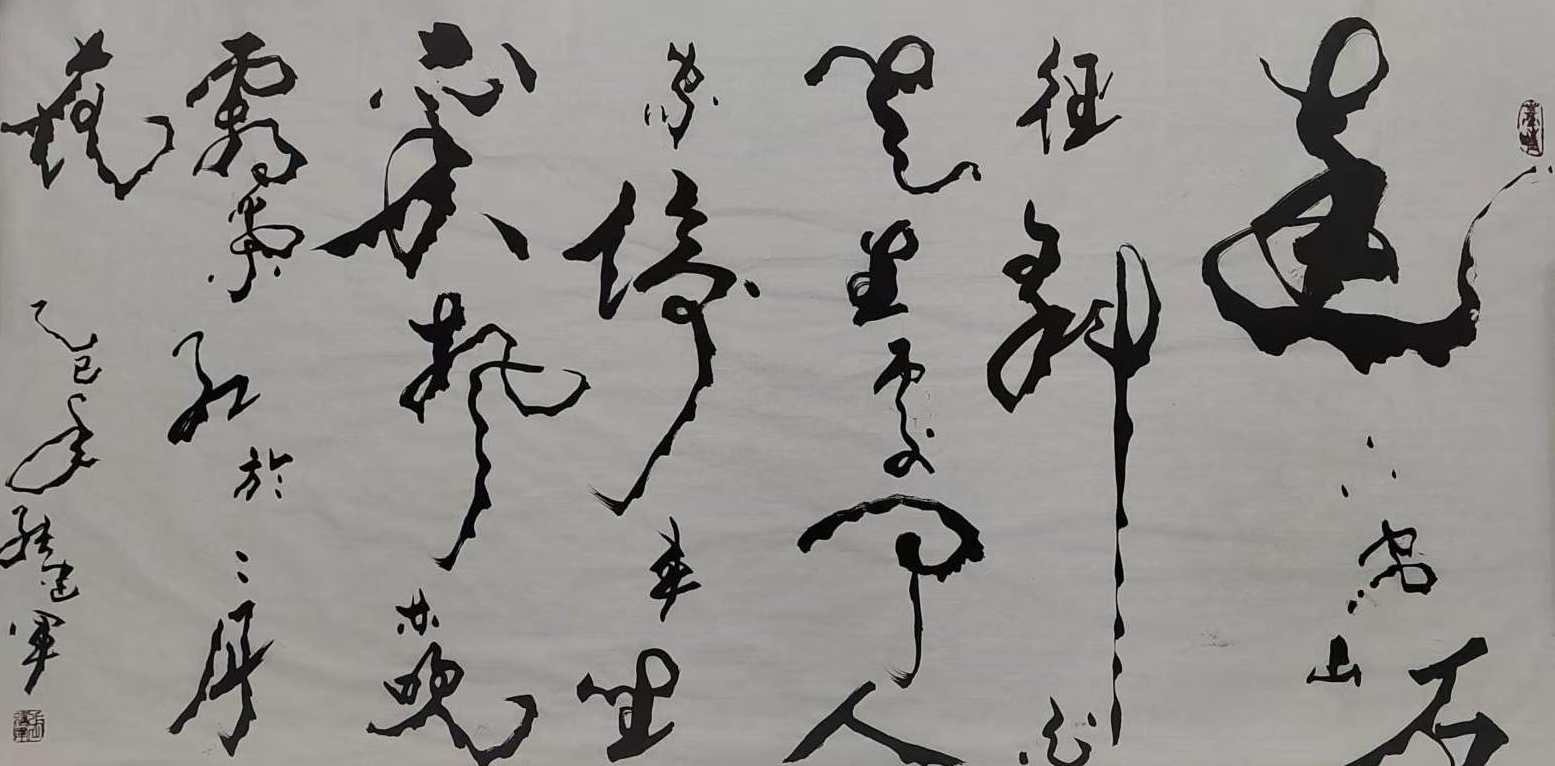 遠上寒山石
徑斜白
雲生處有人
家停車坐
愛楓林晚
霜葉紅於二月
花 乙巳年 建軍